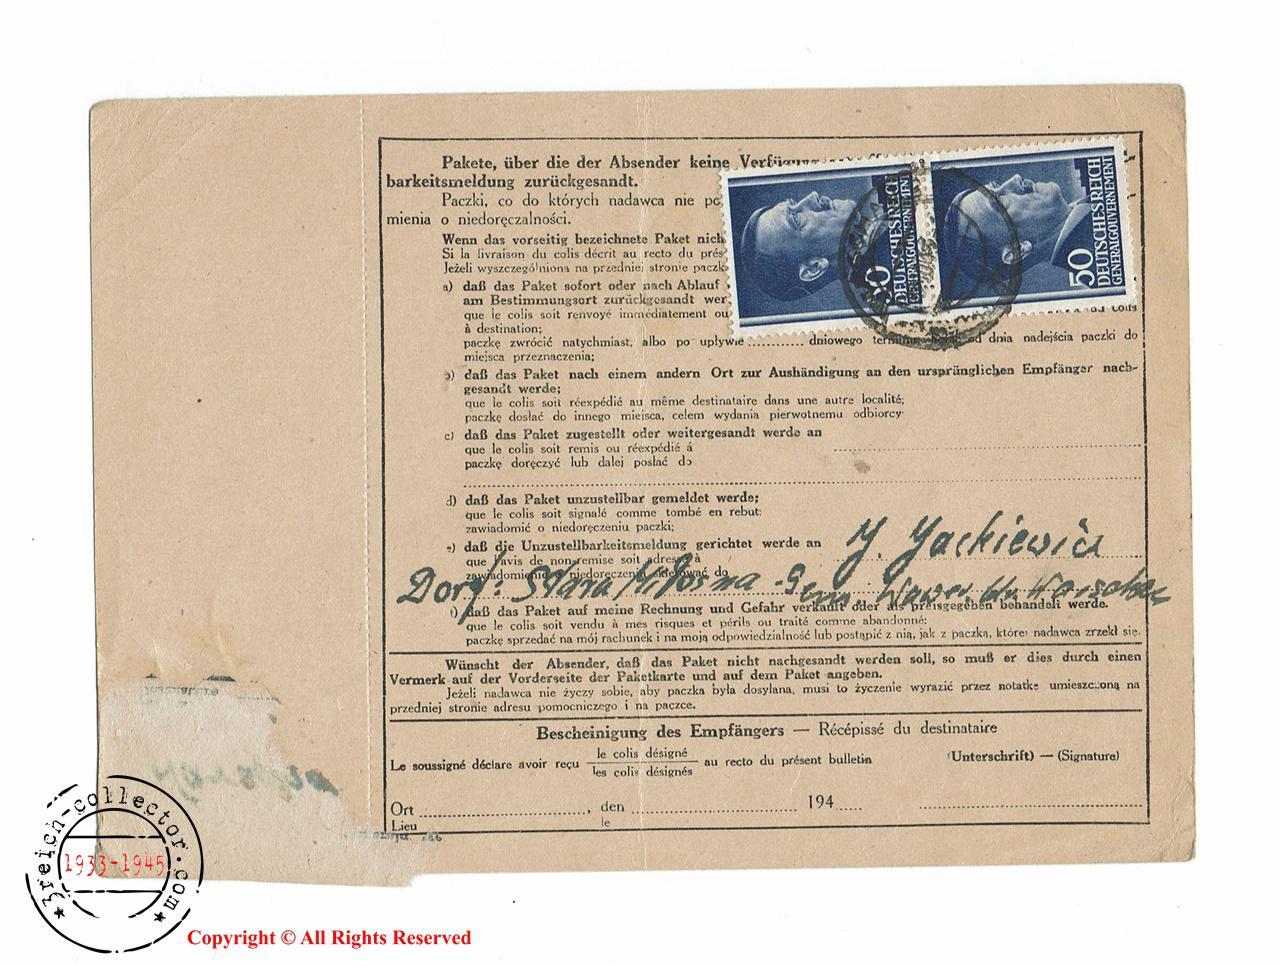 Pakete, über die der Absender keine
barkeitsmeldung zurückgesandt.
Paczki, co do których nadawca nie
mienia o niedoręczalności.
Wenn das vorseitig bezeichnete Paket
Si la livraison du colis décrit au recto du
Jeżeli wyszczególniona na przedniej stronie
a) daß das Paket sofort oder nach Ablauf
am Bestimmungsort zurückgesandt
que le colis soit renvoyé immédiatement ou
à destination;
paczkę zwrócić natychmiast, albo po upływie ........... dniowego od dnia nadejścia paczki do
miejsca przeznaczenia;
b) daß das Paket nach einem andern Ort zur Aushändigung an den ursprünglichen Empfänger nach-
gesandt werde;
que le colis soit réexpédié au même destinataire dans une autre localité;
paczkę dosłać do innego miejsca, celem wydania pierwotnemu odbiorcy
c) daß das Paket zugestellt oder weitergesandt werde an
que le colis soit remis ou réexpédié á
paczkę doręczyć lub dalej posłać do
d) daß das Paket unzustellbar gemeldet werde;
que le colis soit signalé comme tombé en rebut:
zawiadomić o niedoręczeniu paczki;
e) daß die Unzustellbarkeitsmeldung gerichtet werde an J. Jackiewicz
que l'avis de non-remise soit adressé à
zawiadomienie o niedoręczeniu skierować do
Dorf: Stara Miłosna - Gem. Wawer. Kr. Warschau
f) daß das Paket auf meine Rechnung und Gefahr verkauft oder als preisgegeben behandelt werde.
que le colis soit vendu à mes risques et périls ou traité comme abandonné:
paczkę sprzedać na mój rachunek i na moją odpowiedzialność lub postąpić z nią, jak z paczką, której nadawca zrzekł się.
Wünscht der Absender, daß das Paket nicht nachgesandt werden soll, so muß er dies durch einen
Vermerk auf der Vorderseite der Paketkarte und auf dem Paket angeben.
Jeżeli nadawca nie życzy sobie, aby paczka była dosyłana, musi to życzenie wyrazić przez notatkę umieszczoną na
przedniej stronie adresu pomocniczego i na paczce.
Bescheinigung des Empfängers — Récépissé du destinataire
Le soussigné déclare avoir reçu le colis désigné / les colis désignés au recto du présent bulletin (Unterschrift) — (Signature)
Ort , den 194
Lieu le
50 DEUTSCHES REICH GENERALGOUVERNEMENT
50 DEUTSCHES REICH GENERALGOUVERNEMENT
3reich-collector.com
1933-1945
Copyright © All Rights Reserved